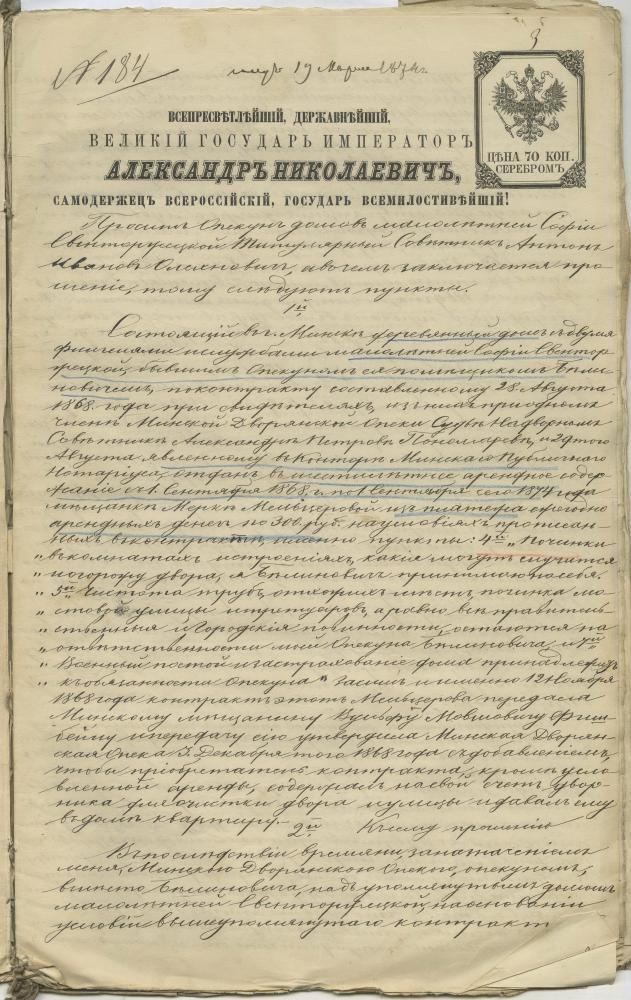 3
№ 184
19 Марта 1874 г.
ВСЕПРЕСВѢТЛѢЙШІЙ, ДЕРЖАВНѢЙШІЙ,
ВЕЛИКІЙ ГОСУДАРЬ ИМПЕРАТОРЪ
АЛЕКСАНДРЪ НИКОЛАЕВИЧЪ,
САМОДЕРЖЕЦЪ ВСЕРОССІЙСКІЙ, ГОСУДАРЬ ВСЕМИЛОСТИВѢЙШІЙ!
ЦѢНА 70 КОП.
СЕРЕБРОМЪ
Проситъ Опекунъ домовъ малолѣтней Софіи
Свенторжецкой Титулярный Совѣтникъ Антонъ
Ивановъ Олехновичъ, а о чемъ заключается про
шеніе, тому слѣдуютъ пункты.
1й
Состоящій въ г. Минскѣ деревянный домъ съ двумя
флигелями и службами малолѣтней Софіи Свентор
жецкой, бывшимъ Опекуномъ ея помѣщикомъ Бѣли
новичемъ, по контракту составленному 28 Августа
1868 года при свидѣтеляхъ, изъ нихъ при одномъ
Членѣ Минской Дворянской Опеки Судьѣ Надворномъ
Совѣтникѣ Александрѣ Петровѣ Пономаревѣ, и 29 того
Августа явленному въ Конторѣ Минскаго Публичнаго
Нотаріуса, отданъ въ шестилѣтнее арендное содер
жаніе съ 1. Сентября 1868 г. по 1 Сентября сего 1874 года
мѣщанкѣ Меркѣ Мельцеровой изъ платежа ежегодно
арендныхъ денегъ по 300 руб. на условіяхъ прописан
ныхъ въ контрактѣ, именно пункты: 4й „Починки
„ въ комнатахъ и строеніяхъ, какія могутъ случится
„ и огорожу двора, я Бѣлиновичъ принимаю на себя.
„ 5й Чистота трубъ, отхожихъ мѣстъ, починка мо
„ стовой улицы и тротуаровъ, а равно всѣ правитель
„ ственныя и Городскія повинности, остаются на
„ отвѣтственности мнѣ Опекуна Бѣлиновича, и 7й
„ Военный постой и застрахованіе дома принадлежитъ
„ къ обязанности Опекуна“ Засимъ и именно 12 Ноября
1868 года контрактъ этотъ Мельцерова передала
Минскому мѣщанину Вульфу Мовшовичу Фиш
бейну и передачу сію утвердила Минская Дворян
ская Опека 3. Декабря того 1868 года съ добавленіемъ,
чтобы пріобрѣтатель контракта, кромѣ усло
вленной аренды, содержалъ на свой счетъ двор
ника для очистки двора и улицы и давалъ ему
въ домѣ квартиру.–
2й Къ сему прошенію
Въ послѣдствіи времени, за назначеніемъ
меня, Минскою Дворянскою Опекою, опекуномъ,
вмѣсто Бѣлиновича, надъ упомянутымъ домомъ
малолѣтней Свенторжецкой, на основаніи
условій вышеупомянутаго контракт